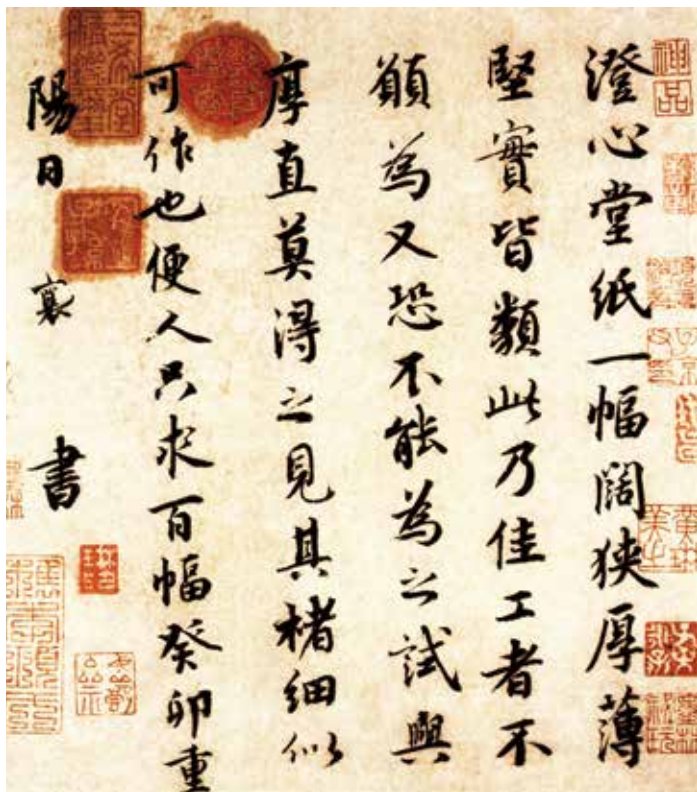 澄心堂紙一幅闊狹厚薄
堅實皆類此乃佳工者不
願為又恐不能為之試與
厚直莫得之見其楮細似
可作也便人只求百幅癸卯重
陽日襄書
神品